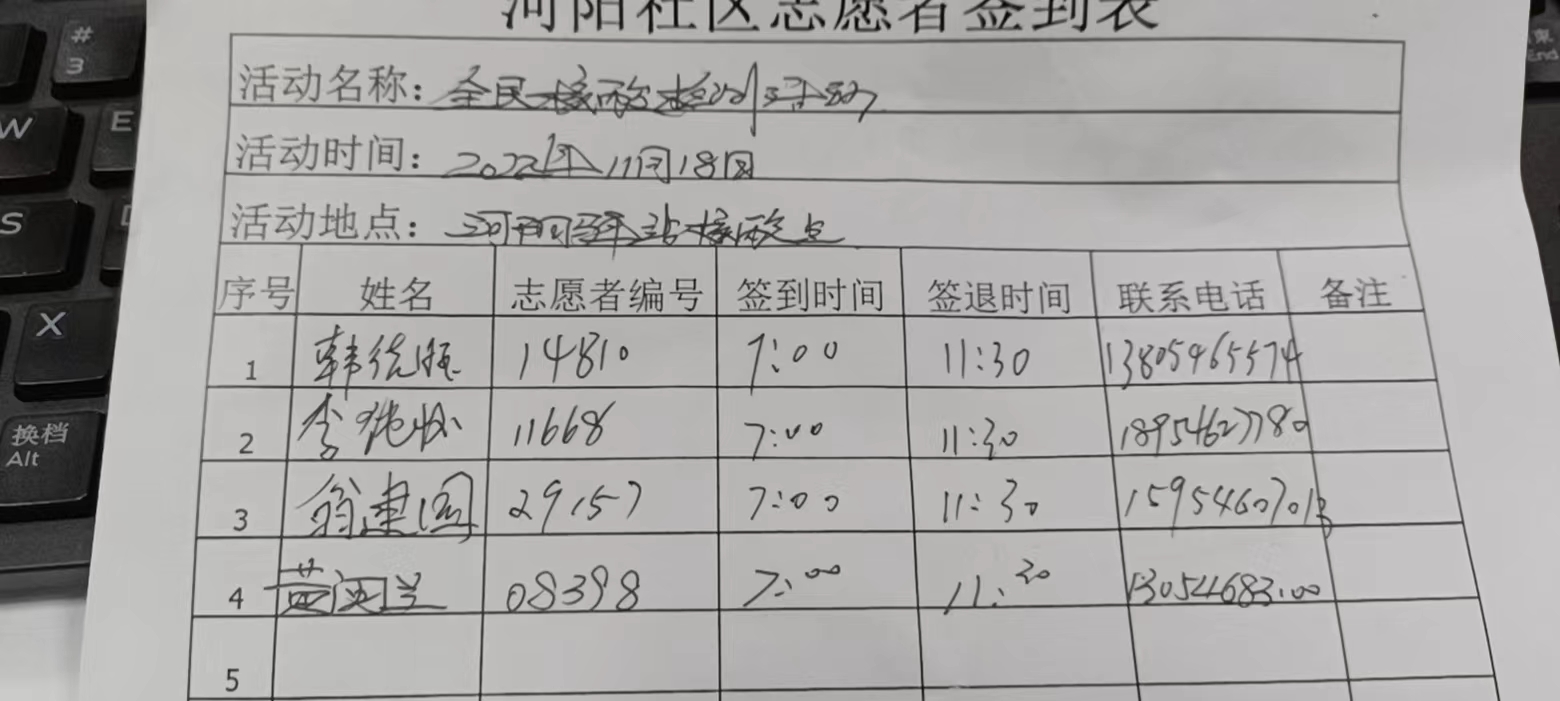 河阳社区志愿者签到表
活动名称：全民核酸检测活动
活动时间：2022年11月18日
活动地点：河阳驿站核酸点
序号 姓名 志愿者编号 签到时间 签退时间 联系电话 备注
1 14810 7:00 11:30 13805465574
2 李 11668 7:00 11:30 18954627780
3 翁建国 29157 7:00 11:30 15954607013
4 08398 7:00 11:30
5
# 3
W
E
S
X
换档
Alt
End